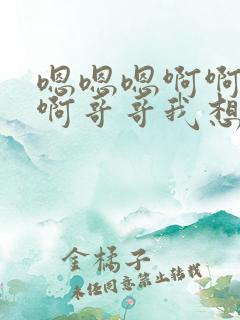 嗯嗯嗯啊啊
啊哥哥我想
金橘子
未经同意禁止转载